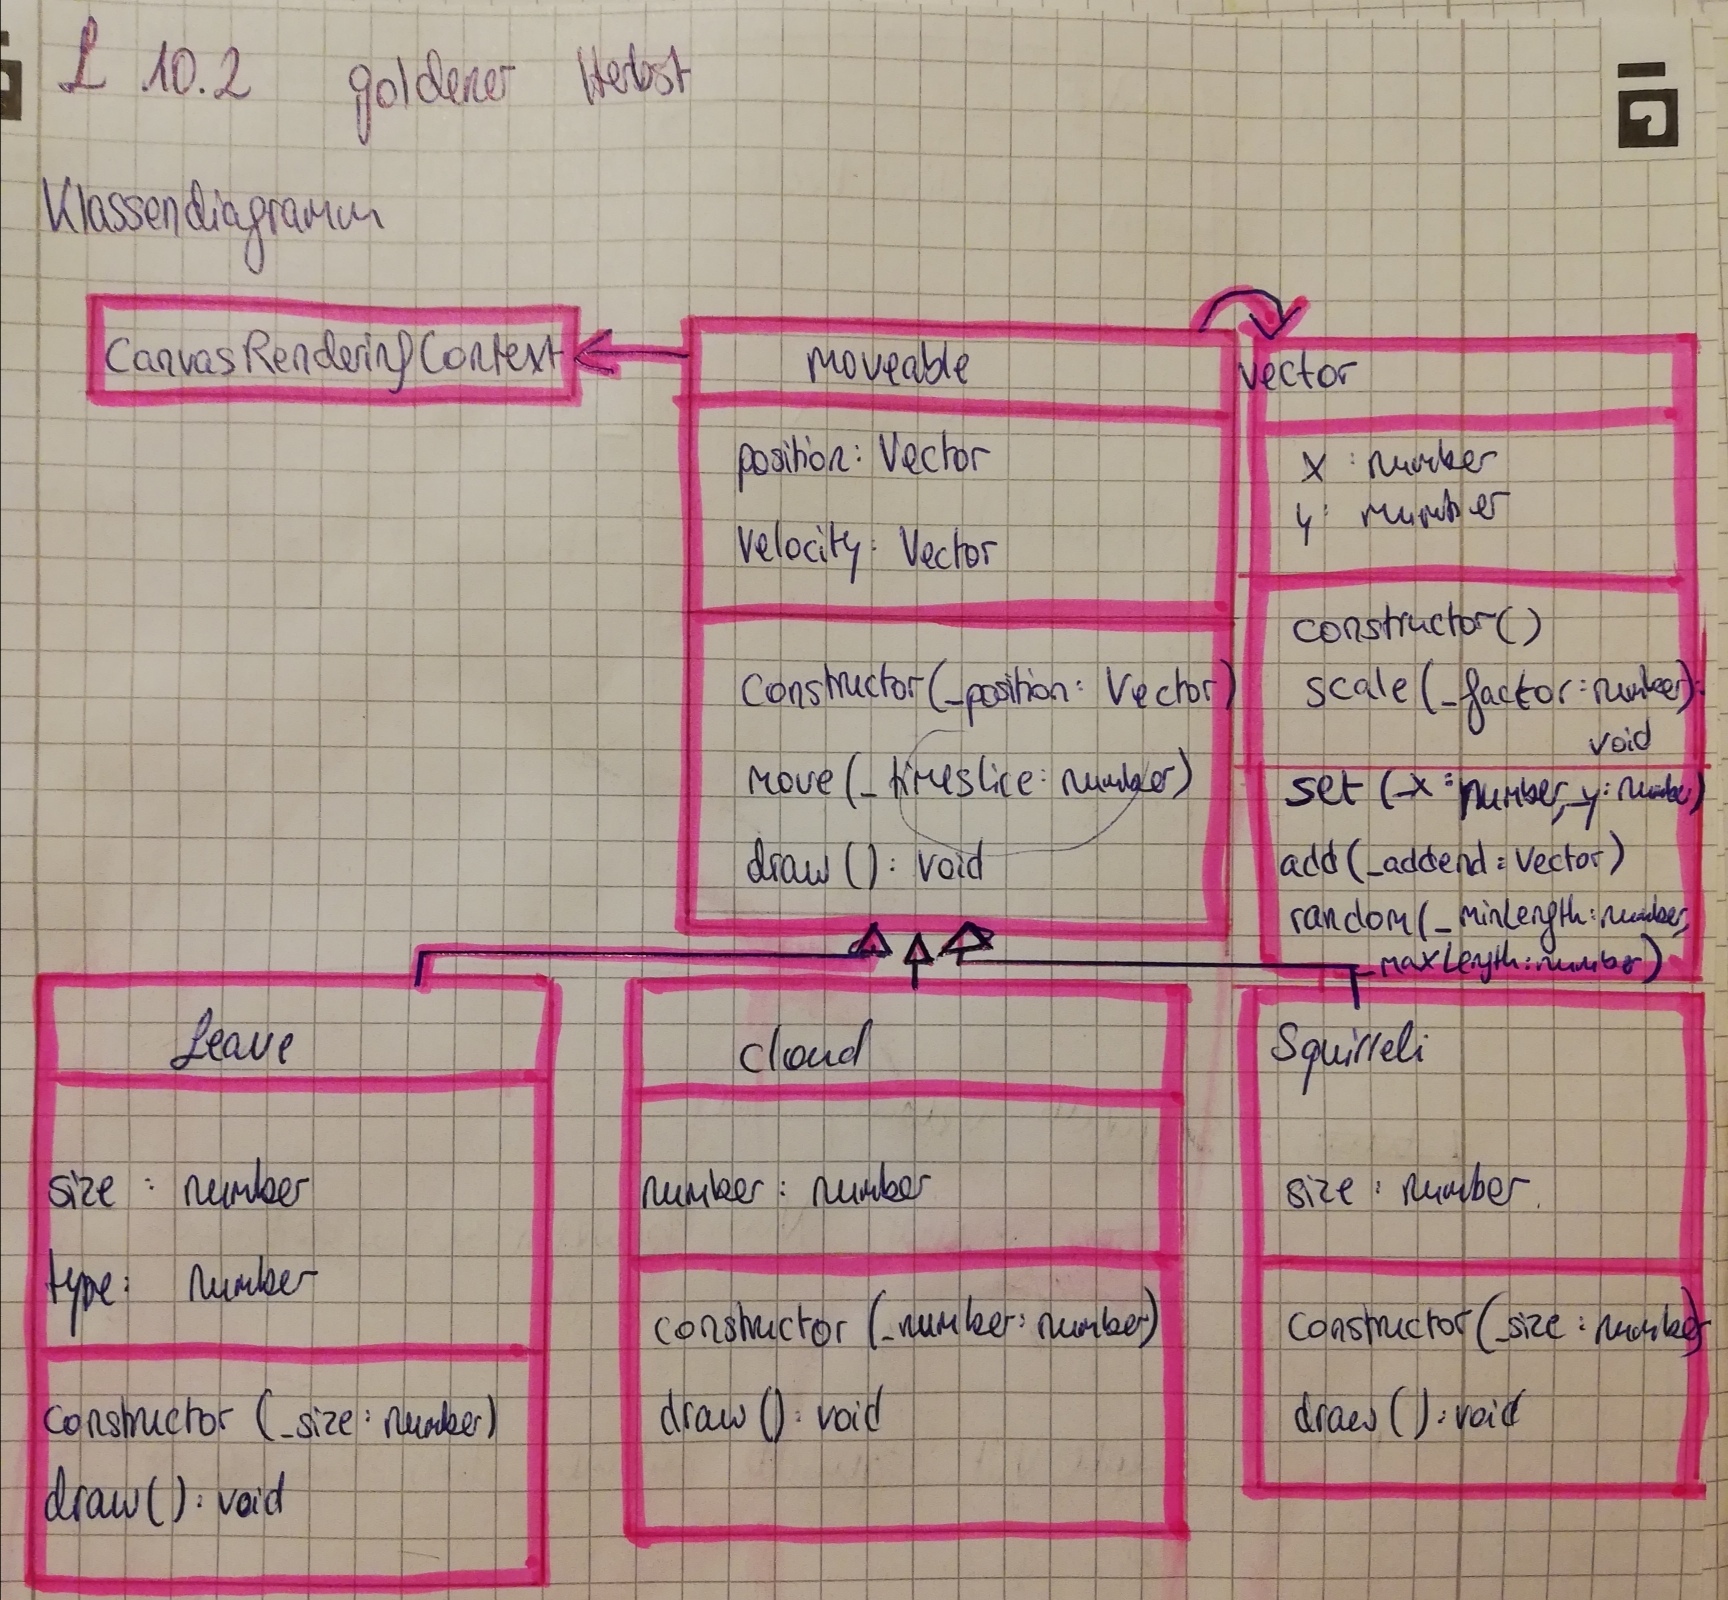 L 10.2 goldener Herbst
Klassendiagramm
CanvasRenderingContext
Moveable
position: Vector
Velocity: Vector
Constructor(_position: Vector)
Move(_timeslice: number)
draw(): void
Vector
x : number
y : number
constructor()
scale(_factor: number):
void
set (_x : number, _y: number)
add(_addend: Vector)
random(_minLength: number,
_maxLength: number)
Leave
size : number
type: number
constructor (_size: number)
draw(): void
Cloud
number: number
constructor (_number: number)
draw(): void
Squirreli
size : number
Constructor(_size : number)
draw(): void